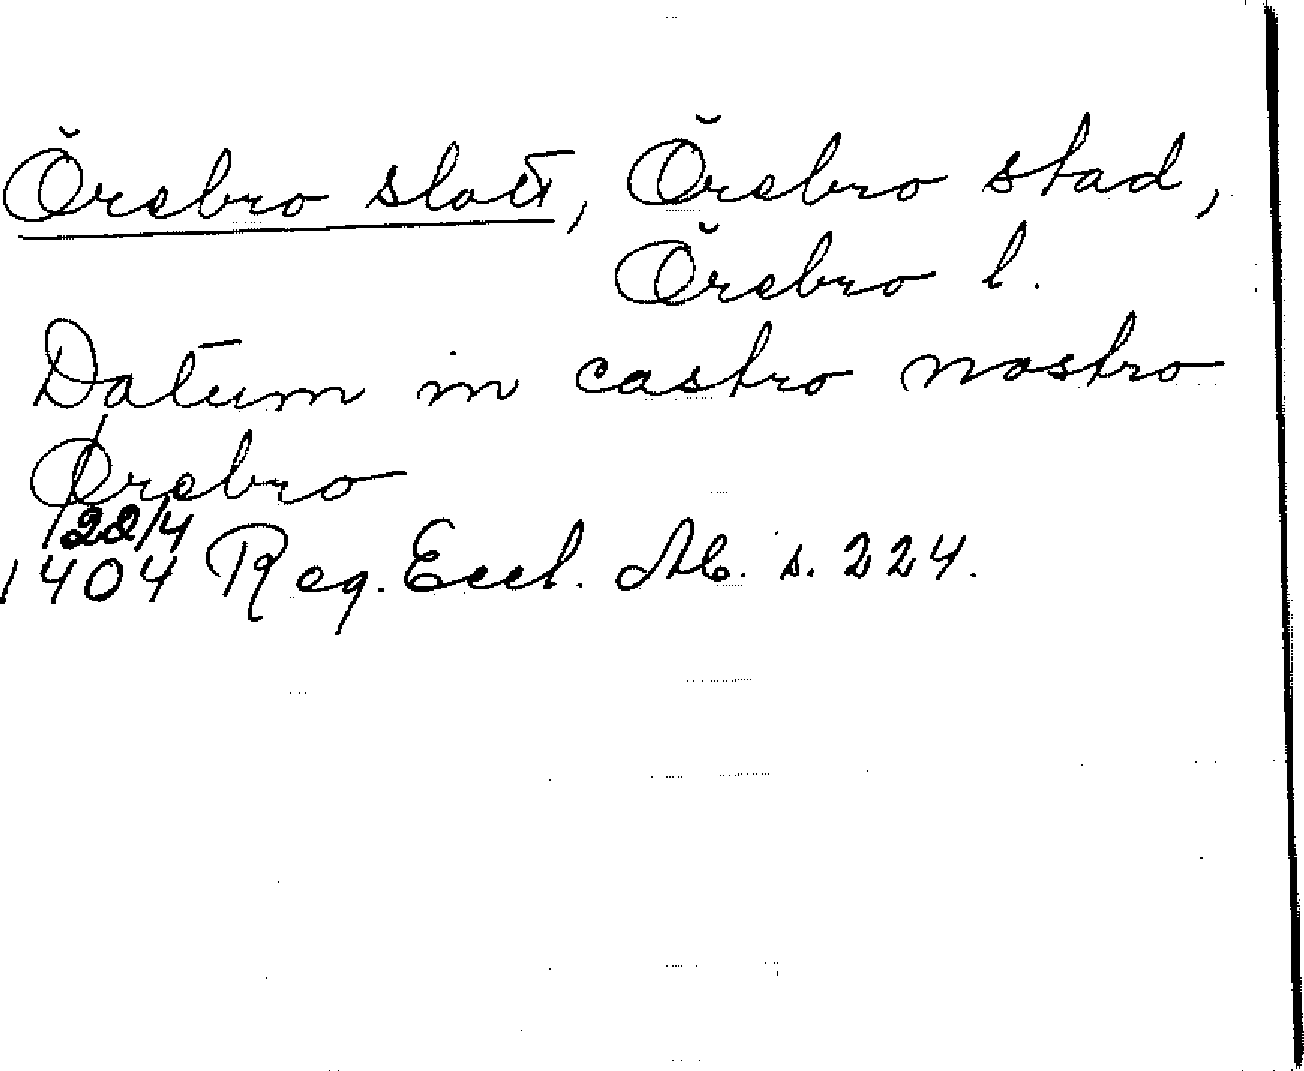 Örebro slott, Örebro stad,
Örebro l.
Datum in castro nostro
Ørebro
22/4
1404 Reg. Eccl. Ab. s. 224.